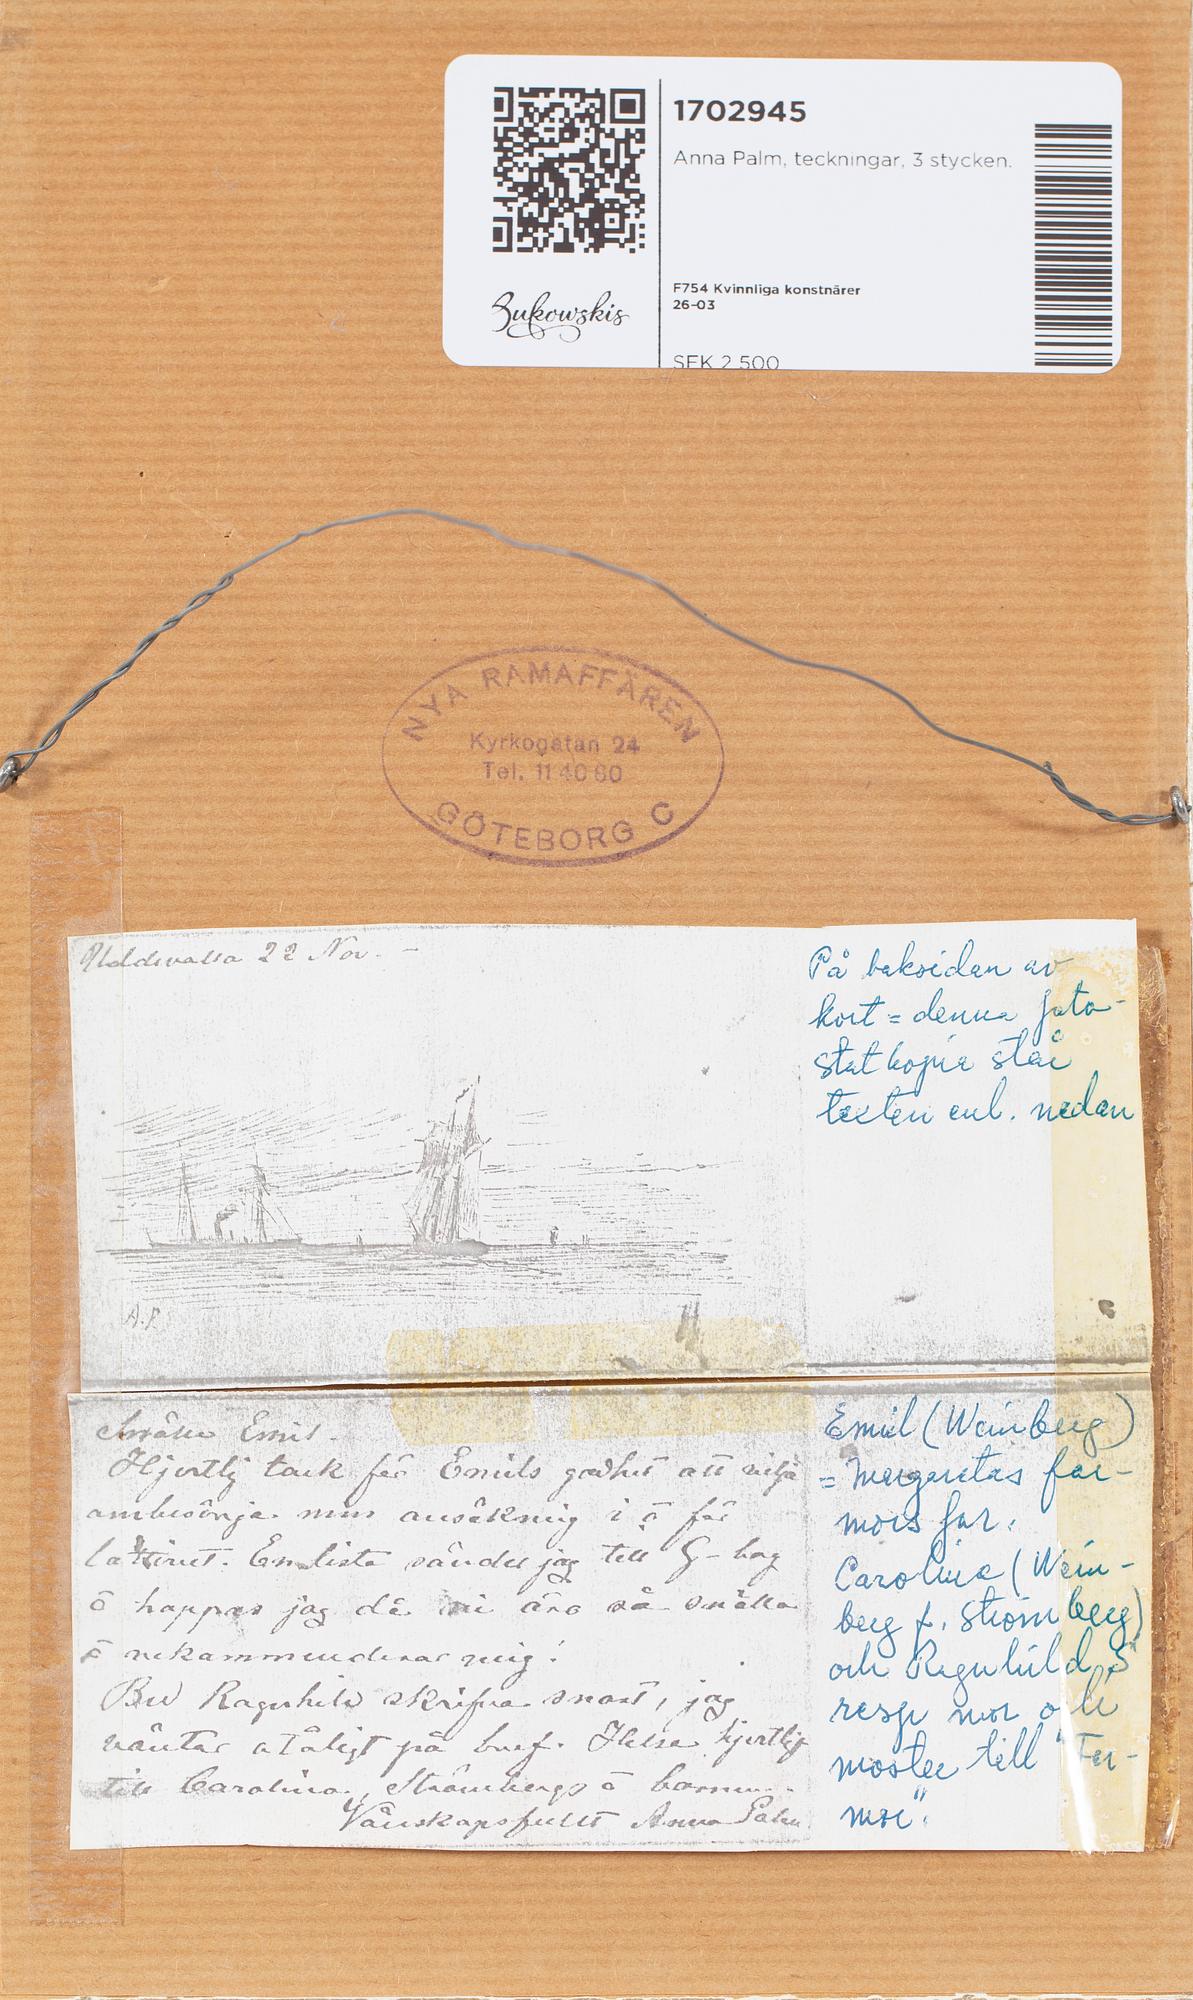 1702945
Anna Palm, teckningar, 3 stycken.
F754 Kvinnliga konstnärer
26-03
SEK 2.500
Bukowskis
NYA RAMAFFÄREN
Kyrkogatan 24
Tel. 11 40 60
GÖTEBORG C
Uddevalla 22 Nov.
På baksidan av
kort = denna foto-
stat kopia står
texten enl. nedan
A.P.
Snälle Emil
Hjertlig tack för Emils godhet att vilja
ombesörja min ansökning i o för
En lista sänder jag till G-borg
o hoppas jag då ni äro så snälla
o rekommenderar mig!
Bed Ragnhild skrifva snart, jag
väntar otåligt på bref. Helsa hjertligt
till Carolina, Strömbergs o barnen
Vänskapsfullt Anna Palm
Emil (Weinberg)
= Margaretas far-
mors far.
Carolina (Wein-
berg f. Strömberg)
och Ragnhild S
resp mor och
moster till "Far-
mor".